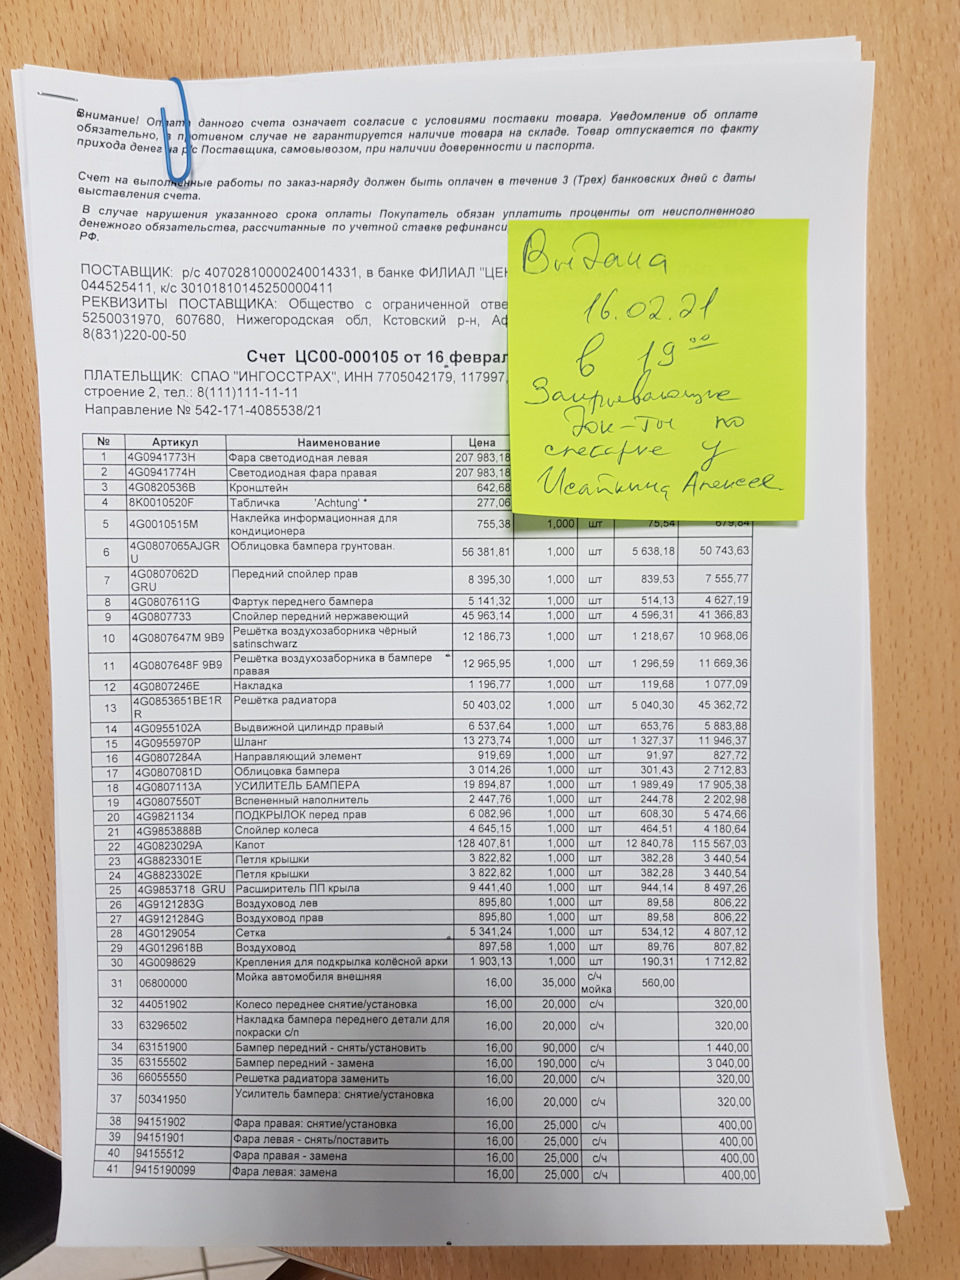 Внимание! Оплата данного счета означает согласие с условиями поставки товара. Уведомление об оплате
обязательно, в противном случае не гарантируется наличие товара на складе. Товар отпускается по факту
прихода денег на р/с Поставщика, самовывозом, при наличии доверенности и паспорта.
Счет на выполненные работы по заказ-наряду должен быть оплачен в течение 3 (Трех) банковских дней с даты
выставления счета.
В случае нарушения указанного срока оплаты Покупатель обязан уплатить проценты от неисполненного
денежного обязательства, рассчитанные по учетной ставке рефинанси
РФ.
ПОСТАВЩИК: р/с 40702810000240014331, в банке ФИЛИАЛ "ЦЕН
044525411, к/с 30101810145250000411
РЕКВИЗИТЫ ПОСТАВЩИКА: Общество с ограниченной отве
5250031970, 607680, Нижегородская обл, Кстовский р-н, Аф
8(831)220-00-50
Счет ЦС00-000105 от 16 феврал
ПЛАТЕЛЬЩИК: СПАО "ИНГОССТРАХ", ИНН 7705042179, 117997,
строение 2, тел.: 8(111)111-11-11
Направление № 542-171-4085538/21
Выдана
16.02.21
в 19 00
Закрывающие
док-ты по
слесарке у
Исайкина Алексея
№ Артикул Наименование Цена
1 4G0941773H Фара светодиодная левая 207 983,18
2 4G0941774H Светодиодная фара правая 207 983,18
3 4G0820536B Кронштейн 642,68
4 8K0010520F Табличка 'Achtung' * 277,06
5 4G0010515M Наклейка информационная для кондиционера 755,38 1,000 шт 75,54 679,84
6 4G0807065AJGRU Облицовка бампера грунтован. 56 381,81 1,000 шт 5 638,18 50 743,63
7 4G0807062D GRU Передний спойлер прав 8 395,30 1,000 шт 839,53 7 555,77
8 4G0807611G Фартук переднего бампера 5 141,32 1,000 шт 514,13 4 627,19
9 4G0807733 Спойлер передний нержавеющий 45 963,14 1,000 шт 4 596,31 41 366,83
10 4G0807647M 9B9 Решётка воздухозаборника чёрный satinschwarz 12 186,73 1,000 шт 1 218,67 10 968,06
11 4G0807648F 9B9 Решётка воздухозаборника в бампере правая 12 965,95 1,000 шт 1 296,59 11 669,36
12 4G0807246E Накладка 1 196,77 1,000 шт 119,68 1 077,09
13 4G0853651BE1RR Решётка радиатора 50 403,02 1,000 шт 5 040,30 45 362,72
14 4G0955102A Выдвижной цилиндр правый 6 537,64 1,000 шт 653,76 5 883,88
15 4G0955970P Шланг 13 273,74 1,000 шт 1 327,37 11 946,37
16 4G0807284A Направляющий элемент 919,69 1,000 шт 91,97 827,72
17 4G0807081D Облицовка бампера 3 014,26 1,000 шт 301,43 2 712,83
18 4G0807113A УСИЛИТЕЛЬ БАМПЕРА 19 894,87 1,000 шт 1 989,49 17 905,38
19 4G0807550T Вспененный наполнитель 2 447,76 1,000 шт 244,78 2 202,98
20 4G9821134 ПОДКРЫЛОК перед прав 6 082,96 1,000 шт 608,30 5 474,66
21 4G9853888B Спойлер колеса 4 645,15 1,000 шт 464,51 4 180,64
22 4G0823029A Капот 128 407,81 1,000 шт 12 840,78 115 567,03
23 4G8823301E Петля крышки 3 822,82 1,000 шт 382,28 3 440,54
24 4G8823302E Петля крышки 3 822,82 1,000 шт 382,28 3 440,54
25 4G9853718 GRU Расширитель ПП крыла 9 441,40 1,000 шт 944,14 8 497,26
26 4G9121283G Воздуховод лев 895,80 1,000 шт 89,58 806,22
27 4G9121284G Воздуховод прав 895,80 1,000 шт 89,58 806,22
28 4G0129054 Сетка 5 341,24 1,000 шт 534,12 4 807,12
29 4G0129618B Воздуховод 897,58 1,000 шт 89,76 807,82
30 4G0098629 Крепления для подкрылка колёсной арки 1 903,13 1,000 шт 190,31 1 712,82
31 06800000 Мойка автомобиля внешняя 16,00 35,000 с/ч мойка 560,00
32 44051902 Колесо переднее снятие/установка 16,00 20,000 с/ч 320,00
33 63296502 Накладка бампера переднего детали для покраски с/п 16,00 20,000 с/ч 320,00
34 63151900 Бампер передний - снять/установить 16,00 90,000 с/ч 1 440,00
35 63155502 Бампер передний - замена 16,00 190,000 с/ч 3 040,00
36 66055550 Решетка радиатора заменить 16,00 20,000 с/ч 320,00
37 50341950 Усилитель бампера: снятие/установка 16,00 20,000 с/ч 320,00
38 94151902 Фара правая: снятие/установка 16,00 25,000 с/ч 400,00
39 94151901 Фара левая - снять/поставить 16,00 25,000 с/ч 400,00
40 94155512 Фара правая - замена 16,00 25,000 с/ч 400,00
41 9415190099 Фара левая: замена 16,00 25,000 с/ч 400,00